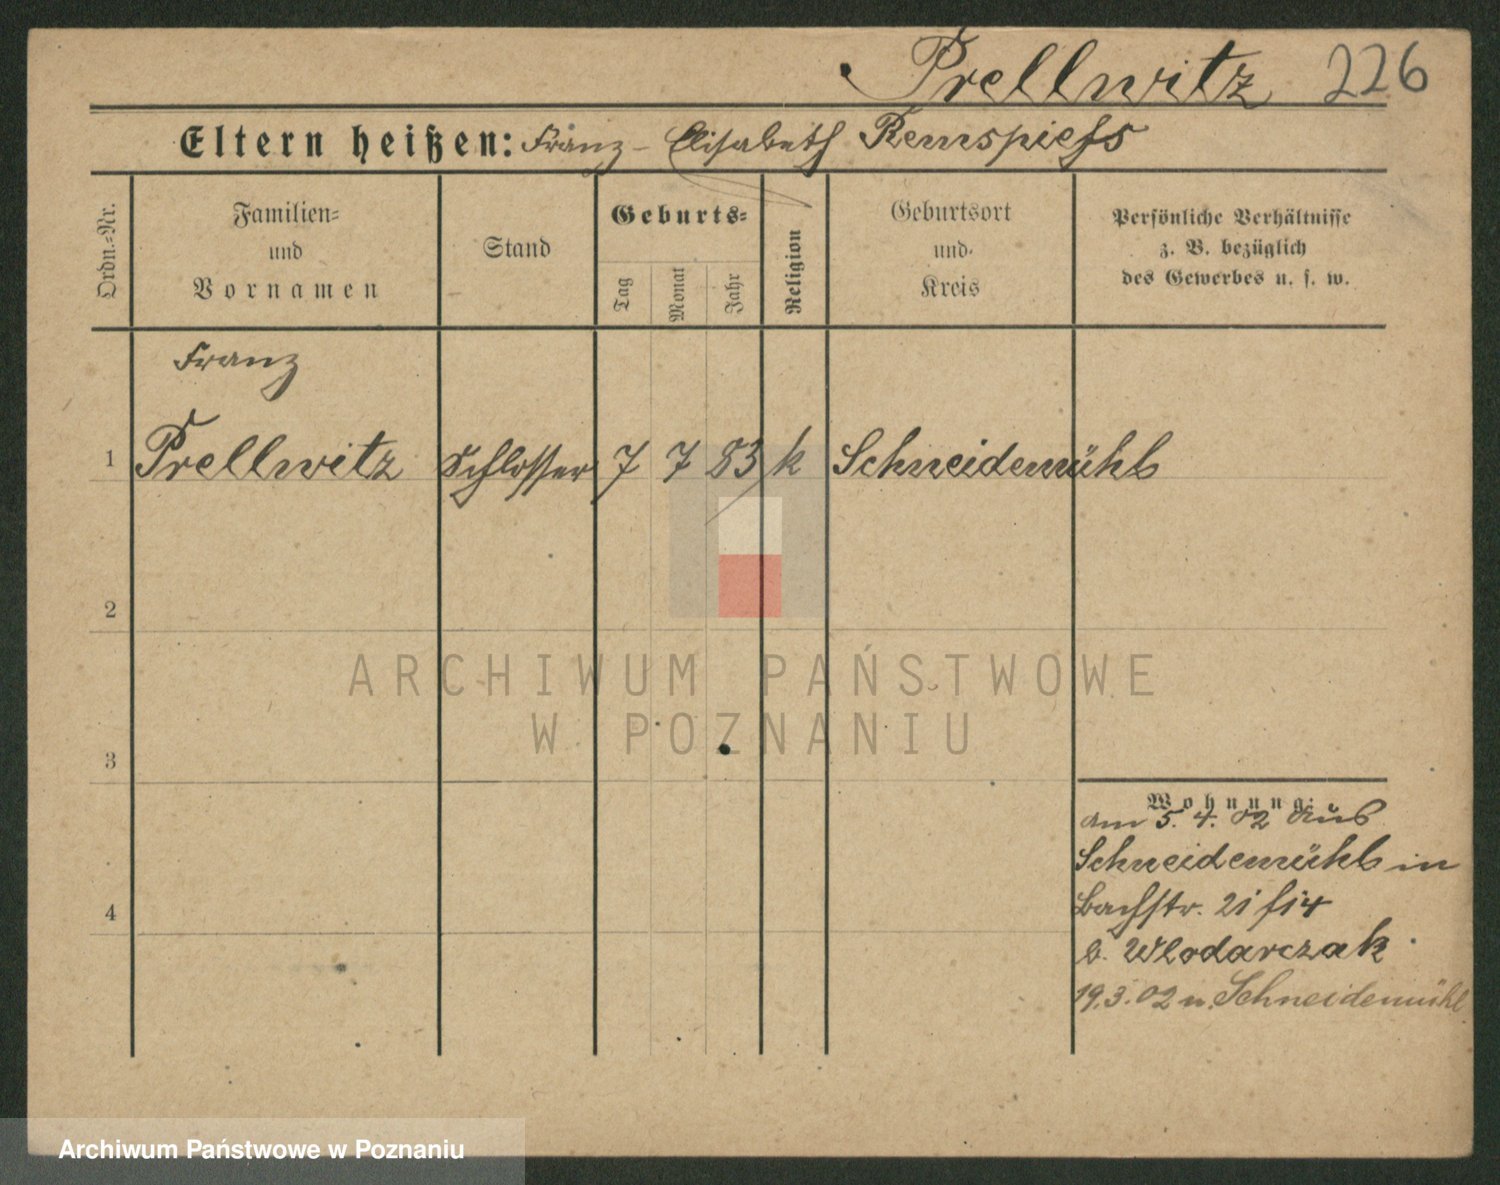 Prellwitz 226
Eltern heißen: Franz - Elisabeth Remspiess
Ordn.=Nr.
Familien=
und
Vornamen
Stand
Geburts=
Tag
Monat
Jahr
Religion
Geburtsort
und
Kreis
Persönliche Verhältnisse
z. B. bezüglich
des Gewerbes u. s. w.
Franz
1 Prellwitz Schlosser 7 7 83 k Schneidemühl
2
ARCHIWUM PAŃSTWOWE
W POZNANIU
3
Wohnung:
am 5. 4. 02 aus
Schneidemühl in
Bachstr. 21
4
b. Wlodarczak
19.3.02 n. Schneidemühl
Archiwum Państwowe w Poznaniu